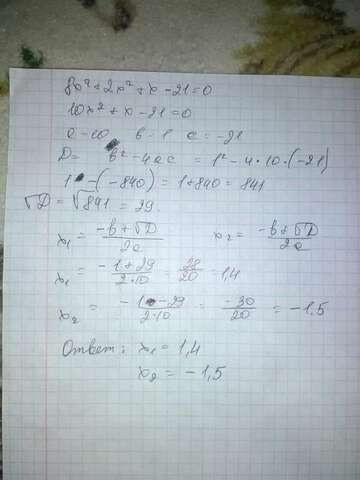 8x² + 2x² + x - 21 = 0
10x² + x - 21 = 0
a - 10 b - 1 c = -21
D = b² - 4ac = 1² - 4·10·(-21)
1 - (-840) = 1 + 840 = 841
√D = √841 = 29.
x₁ = -b + √D / 2a x₂ = -b + √D / 2a
x₁ = -1 + 29 / 2·10 = 28 / 20 = 1,4
x₂ = -1 - 29 / 2·10 = -30 / 20 = -1.5
Ответ: x₁ = 1,4
x₂ = -1,5